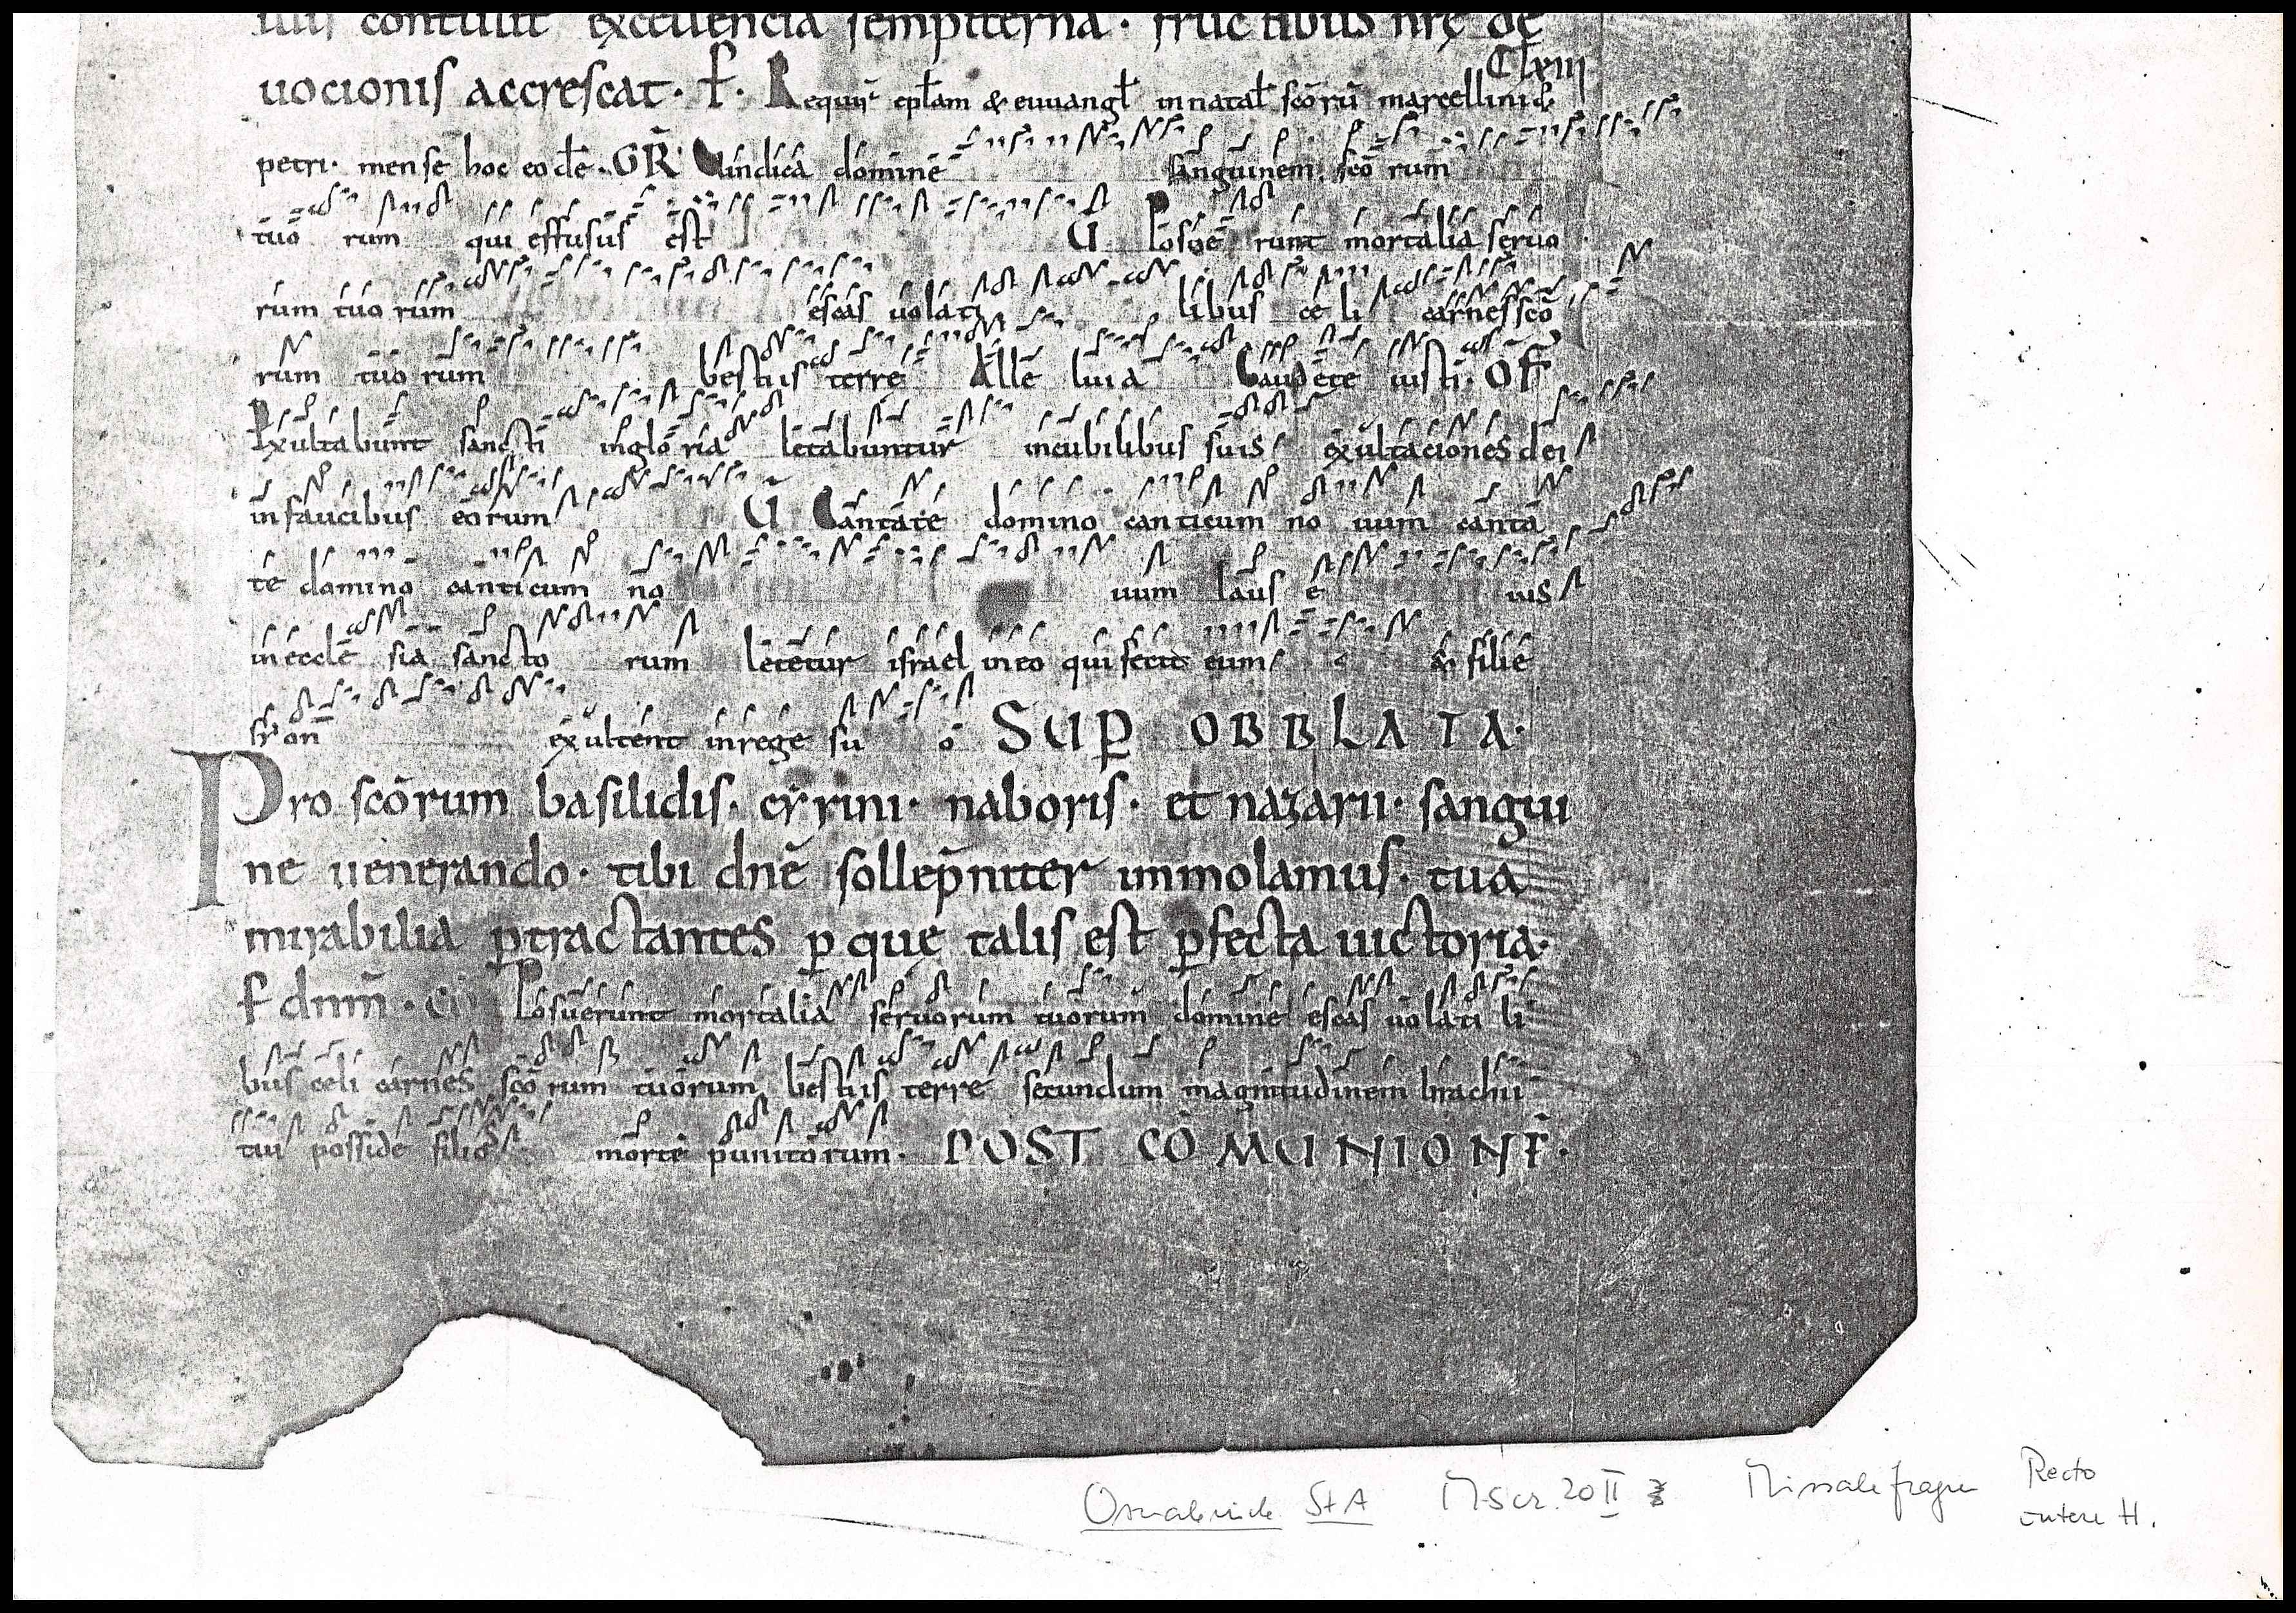 illis contulit excellencia sempiterna · fructibus nr̄ę de
uocionis accrescat · ꝑ · Require epłam & euuangł in natał scōrū marcellini &
CLxiii
petri · mense hoc eodē · GR̄ Uindica domine sanguinem scō rum
tuo rum qui effusus est V̄ Posue runt mortalia seruo
rum tuo rum escas uolati libus ce li carnes scō
rum tuo rum bestiis terre Alle luia Gaudete iusti · OF̄
Exultabunt sancti in glo ria letabuntur in cubilibus suis exultaciones dei
in faucibus eorum V̄ Cantate domino canticum no uum canta
te domino canticum no uum laus e ius
in eccle sia sancto rum letetur israel in eo qui fecit eum & filie
syon exultent in rege su o SUP̱ OBBLATA ·
Pro scōrum basilidis · cyrini · naboris · et nazarii · sangui
ne uenerando · tibi dnē sollep̄niter immolamus · tua
mirabilia ꝑtractantes ꝑ que talis est ꝑfecta uictoria ·
ꝑ dnm̄ · cō Posuerunt mortalia seruorum tuorum domine escas uolati li
bus celi carnes scō rum tuorum bestiis terre secundum magnitudinem brachii
tui posside filios morte punitorum · POST CŌMUNIONĒ ·
Osnabrück StA Mscr. 20 II Missale fragm Recto
untere H.